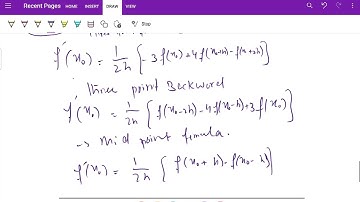 Recent Pages
HOME
INSERT
DRAW
VIEW
f'(x₀) = 1/2h {-3f(x₀)+4f(x₀+h)-f(x₀+2h)
Three point Backward
f'(x₀) = 1/2h {f(x₀-2h)-4f(x₀-h)+3f(x₀)}
→ Mid point formula.
f'(x₀) = 1/2h {f(x₀+h)-f(x₀-h)}